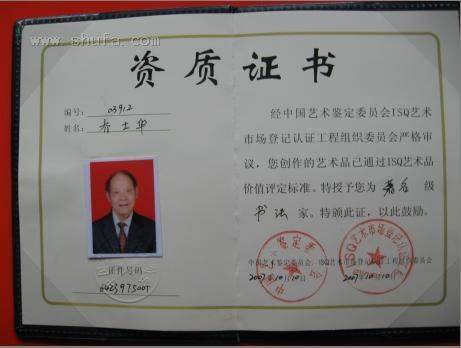 www.shufa.com
资质证书
编号： 03912
姓名：
证件号码
经中国艺术鉴定委员会ISQ艺术
市场登记认证工程组织委员会严格审
议，您创作的艺术品已通过ISQ艺术品
价值评定标准。特授予您为 著名 级
书法 家。特颁此证，以此鼓励。
中国艺术鉴定委员会
2007年10月10日
ISQ艺术市场登记认证工程组织委员会
2007年10月10日